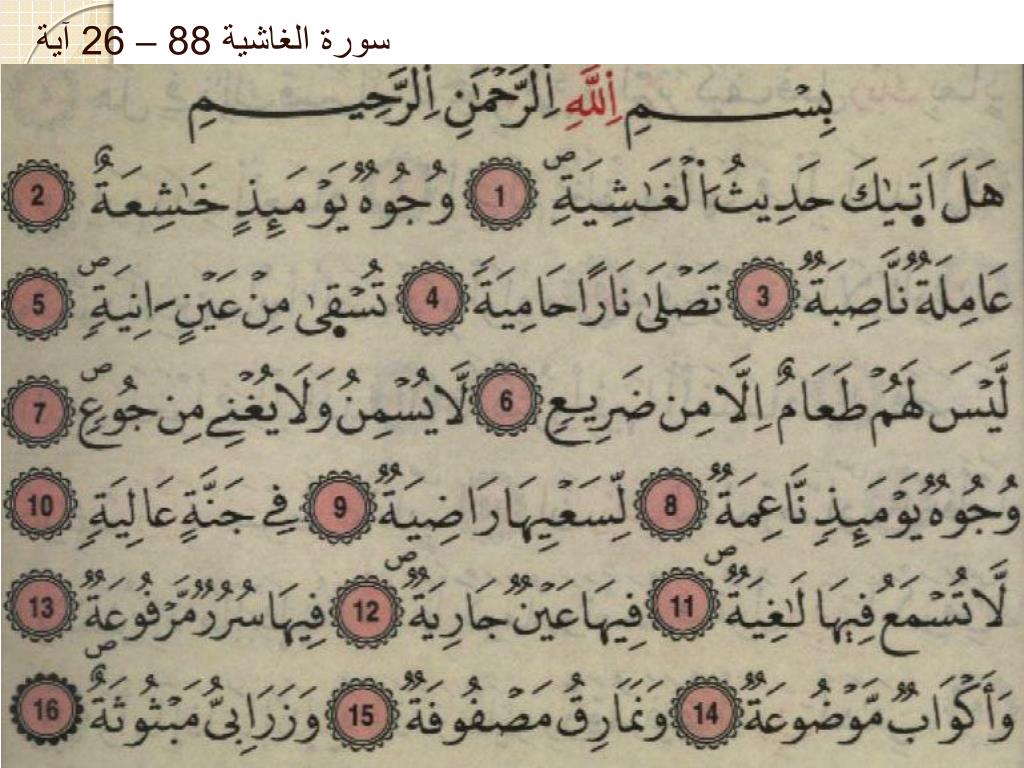 سورة الغاشية 88 – 26 آية
بِسْمِ اِ۬للَّهِ اِ۬لرَّحْمَٰنِ اِ۬لرَّحِيمِ
هَلَ اَت۪يٰكَ حَدِيثُ اُ۬لْغَٰشِيَةِۖ 1 وُجُوهٞ يَوْمَئِذٍ خَٰشِعَةٌ 2
عَامِلَةٞ نَّاصِبَةٞ 3 تَصْلَىٰ نَاراً حَامِيَةٗ 4 تُسْق۪يٰ مِنْ عَيْنٍ ءَانِيَةٖۖ 5
لَّيْسَ لَهُمْ طَعَامٌ اِلَّا مِن ضَرِيعٖ 6 لَّا يُسْمِنُ وَلَا يُغْنِے مِن جُوعٖۖ 7
وُجُوهٞ يَوْمَئِذٖ نَّاعِمَةٞ 8 لِّسَعْيِهَا رَاضِيَةٞ 9 فِے جَنَّةٍ عَالِيَةٖ 10
لَّا تُسْمَعُ فِيهَا لَٰغِيَةٞۖ 11 فِيهَا عَيْنٞ جَارِيَةٞۖ 12 فِيهَا سُرُرٞ مَّرْفُوعَةٞ 13
وَأَكْوَابٞ مَّوْضُوعَةٞ 14 وَنَمَارِقُ مَصْفُوفَةٞ 15 وَزَرَابِيُّ مَبْثُوثَةٌۖ 16